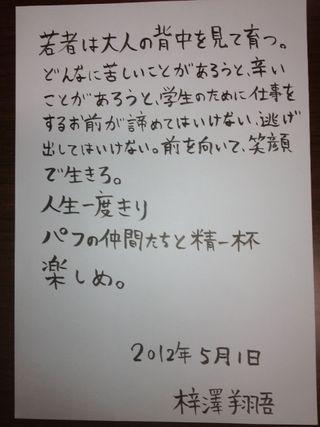 若者は大人の背中を見て育つ。
どんなに苦しいことがあろうと、辛い
ことがあろうと、学生のために仕事を
するお前が諦めてはいけない、逃げ
出してはいけない。前を向いて、笑顔
で生きろ。
人生一度きり
パフの仲間たちと精一杯
楽しめ。
2012年5月1日
梓澤翔吾